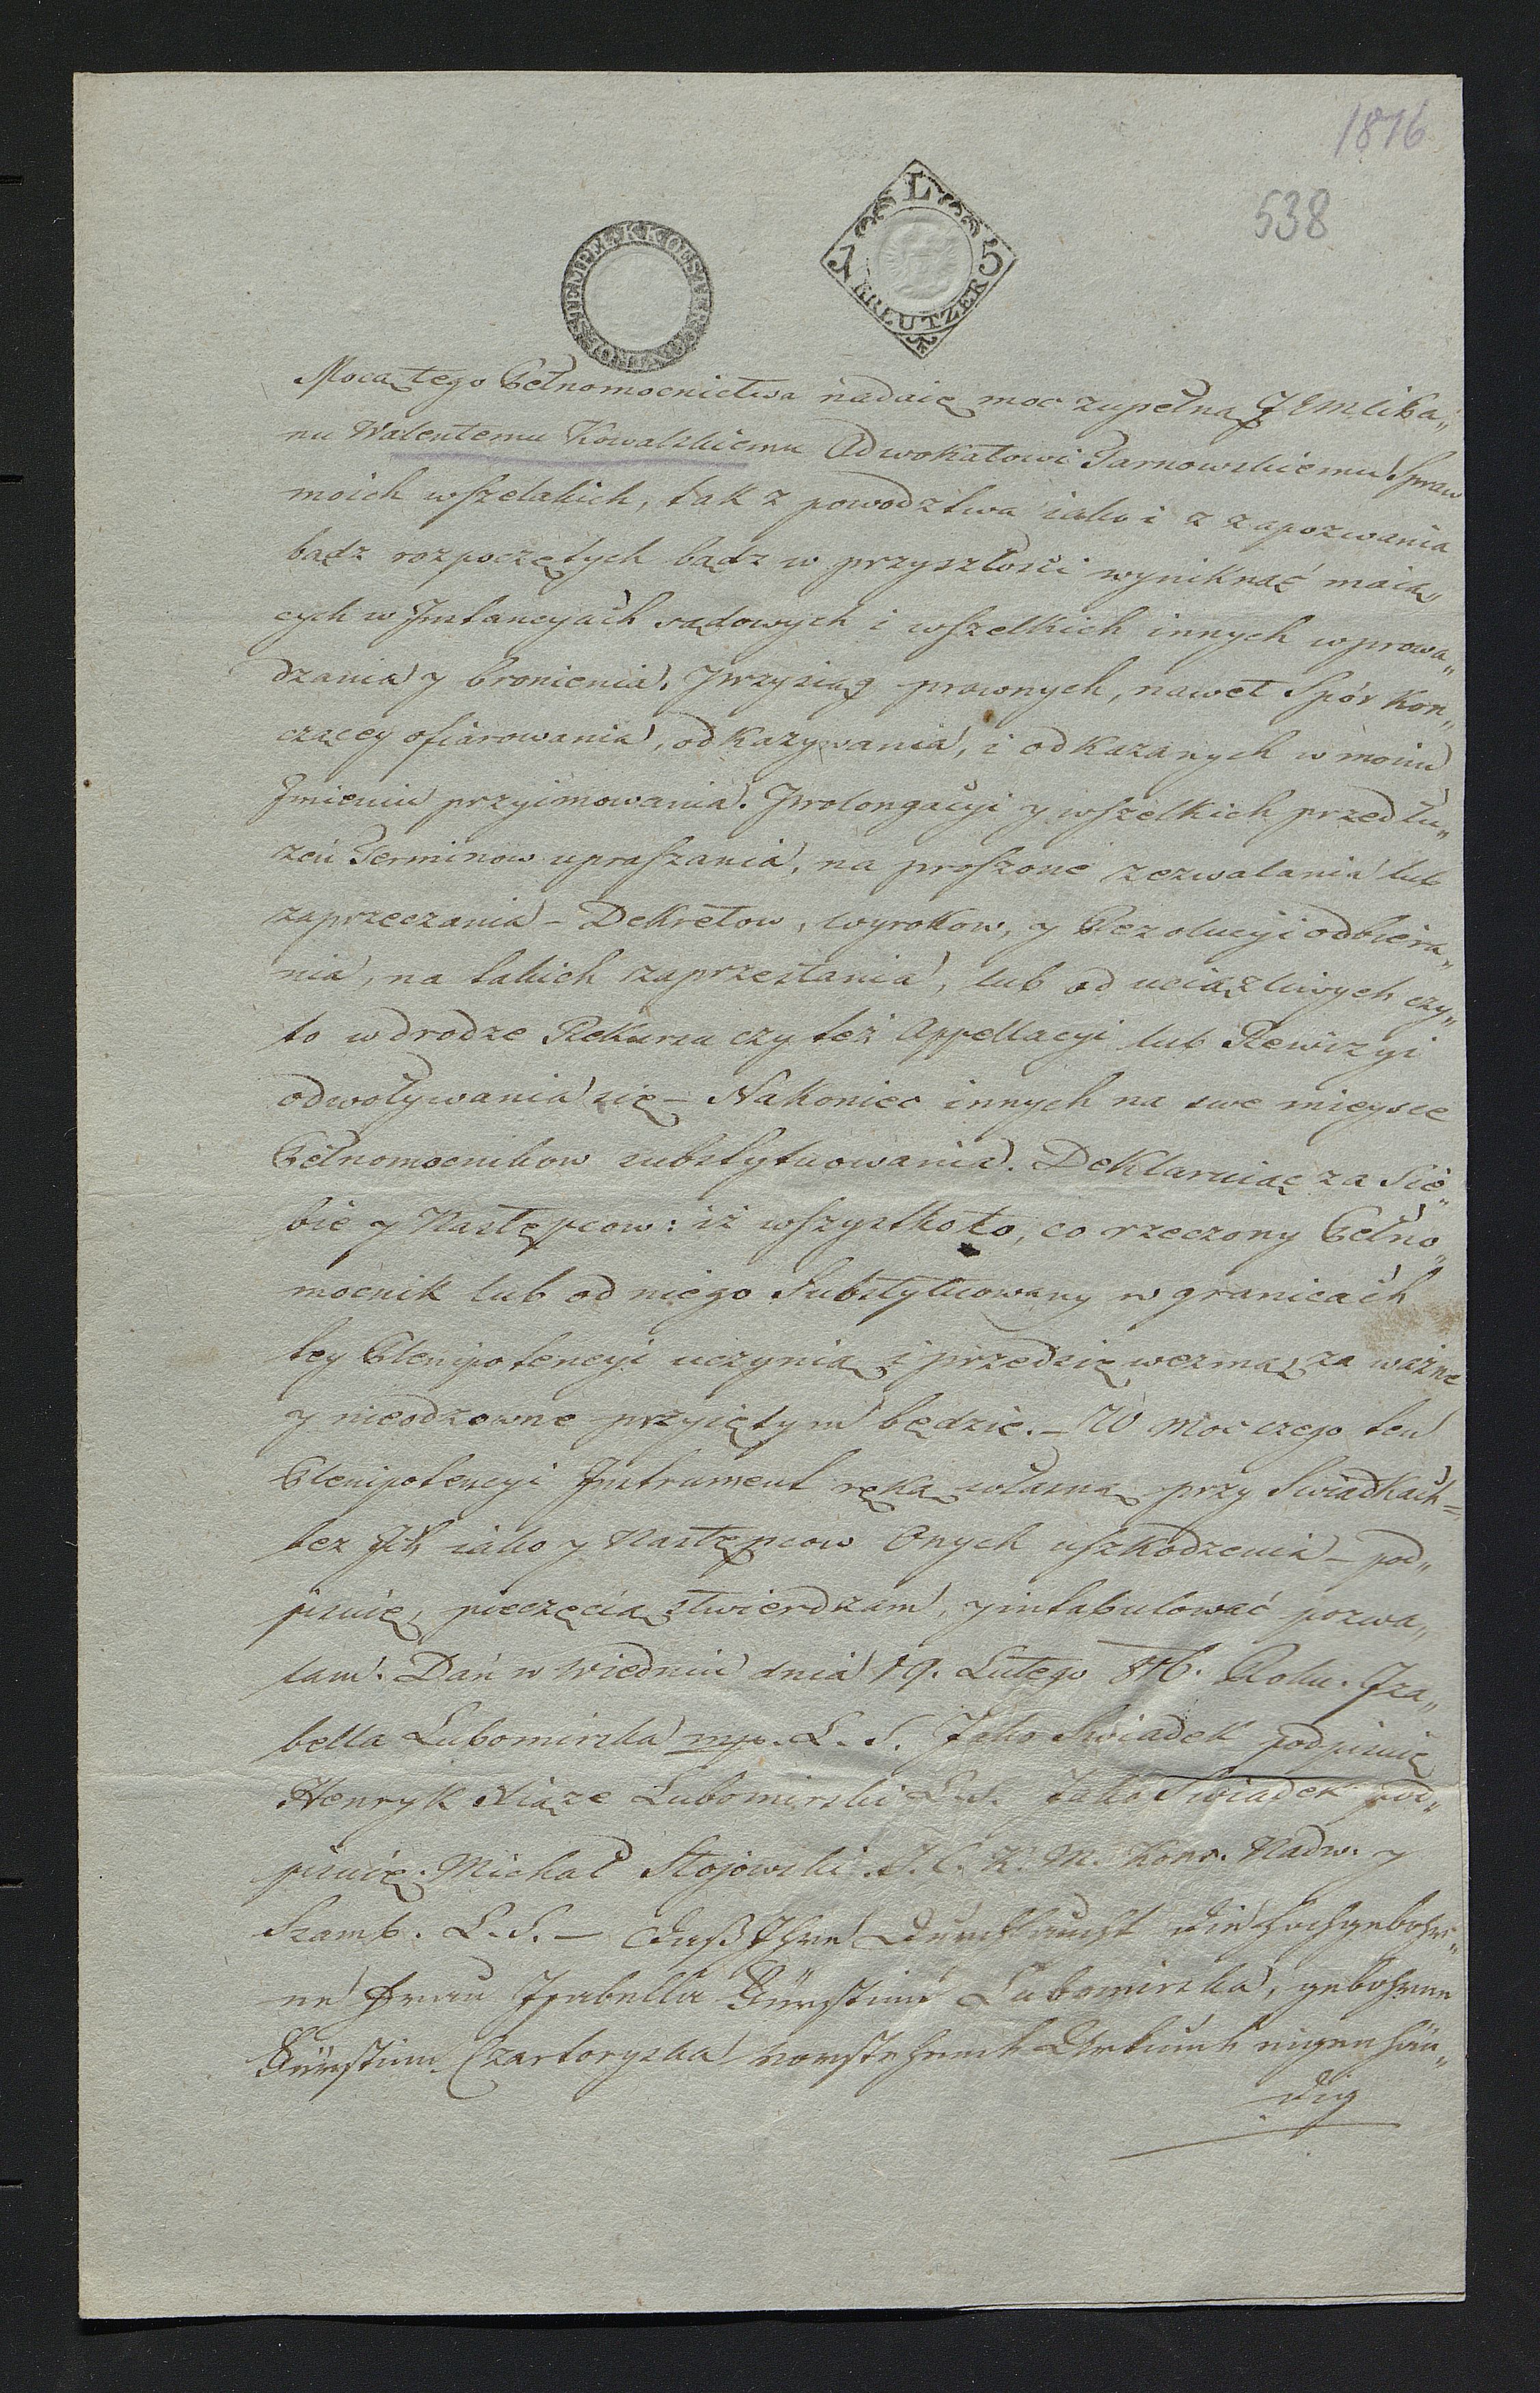 1816
538
L
15 KREUTZER
STEMPEL KK OESTER
Mocą tego Pełnomocnictwa nadaię moc zupełną JEMci Pa„
nu Walentemu Kowalskiemu Adwokatowi Tarnowskiemu Spraw
moich wszelakich, tak z powodztwa iako i z zapozwania
bądz rozpoczętych bądz w przyszłości wyniknąć maią„
cych w Instancyach sądowych i wszelkich innych wprowa„
dzania y bronienia. Przysiąg prawnych, nawet Spór Kon„
czącey ofiarowania, odkazywania, i odkazanych w moim
Jmieniu przyimowania. Prolongacyi y wszelkich przedłu„
żeń Terminow upraszania, na proszone zezwalania lub
zaprzeczania – Dekretow, wyrokow, y Rezolucyi odbiera„
nia, na takich zaprzestania, lub od uciążliwych czy„
to w drodze Rekursu czy też Appellacyi lub Rewizyi
odwoływania się – Nakoniec innych na swe mieysce
Pełnomocnikow substytuowania. Deklaruiąc za Sie„
bie y Następcow: iż wszystko to, co rzeczony Pełno„
mocnik lub od niego Substytuowany w granicach
tey Plenipotencyi uczynią i przedsięwezmą, za ważne
y nieodzowne przyiętym będzie. – W moc czego ten
Plenipotencyi Instrument ręką własną przy Swiadkach=
bez Ich iako y Następcow Onych uszkodzenia – pod„
pisuię, pieczęcią stwierdzam, y intabulować pozwa„
lam. Dań w Wiedniu dnia 19. Lutego 816. Roku. Iza„
bella Lubomirska mp. L. S. Jako Swiadek podpisuię
Henryk Xiąże Lubomirski L. S. Jako Swiadek pod„
pisuię. Michał Stojowski J. C. K. M. Kons. Nadw. y
Szamb. L. S. – Daß Ihre Durchlaucht die hochgebohr„
ne Frau Isabella Fürstinn Lubomirska, gebohrne
Fürstinn Czartoryska vorstehende Urkunde eigenhän„
dig